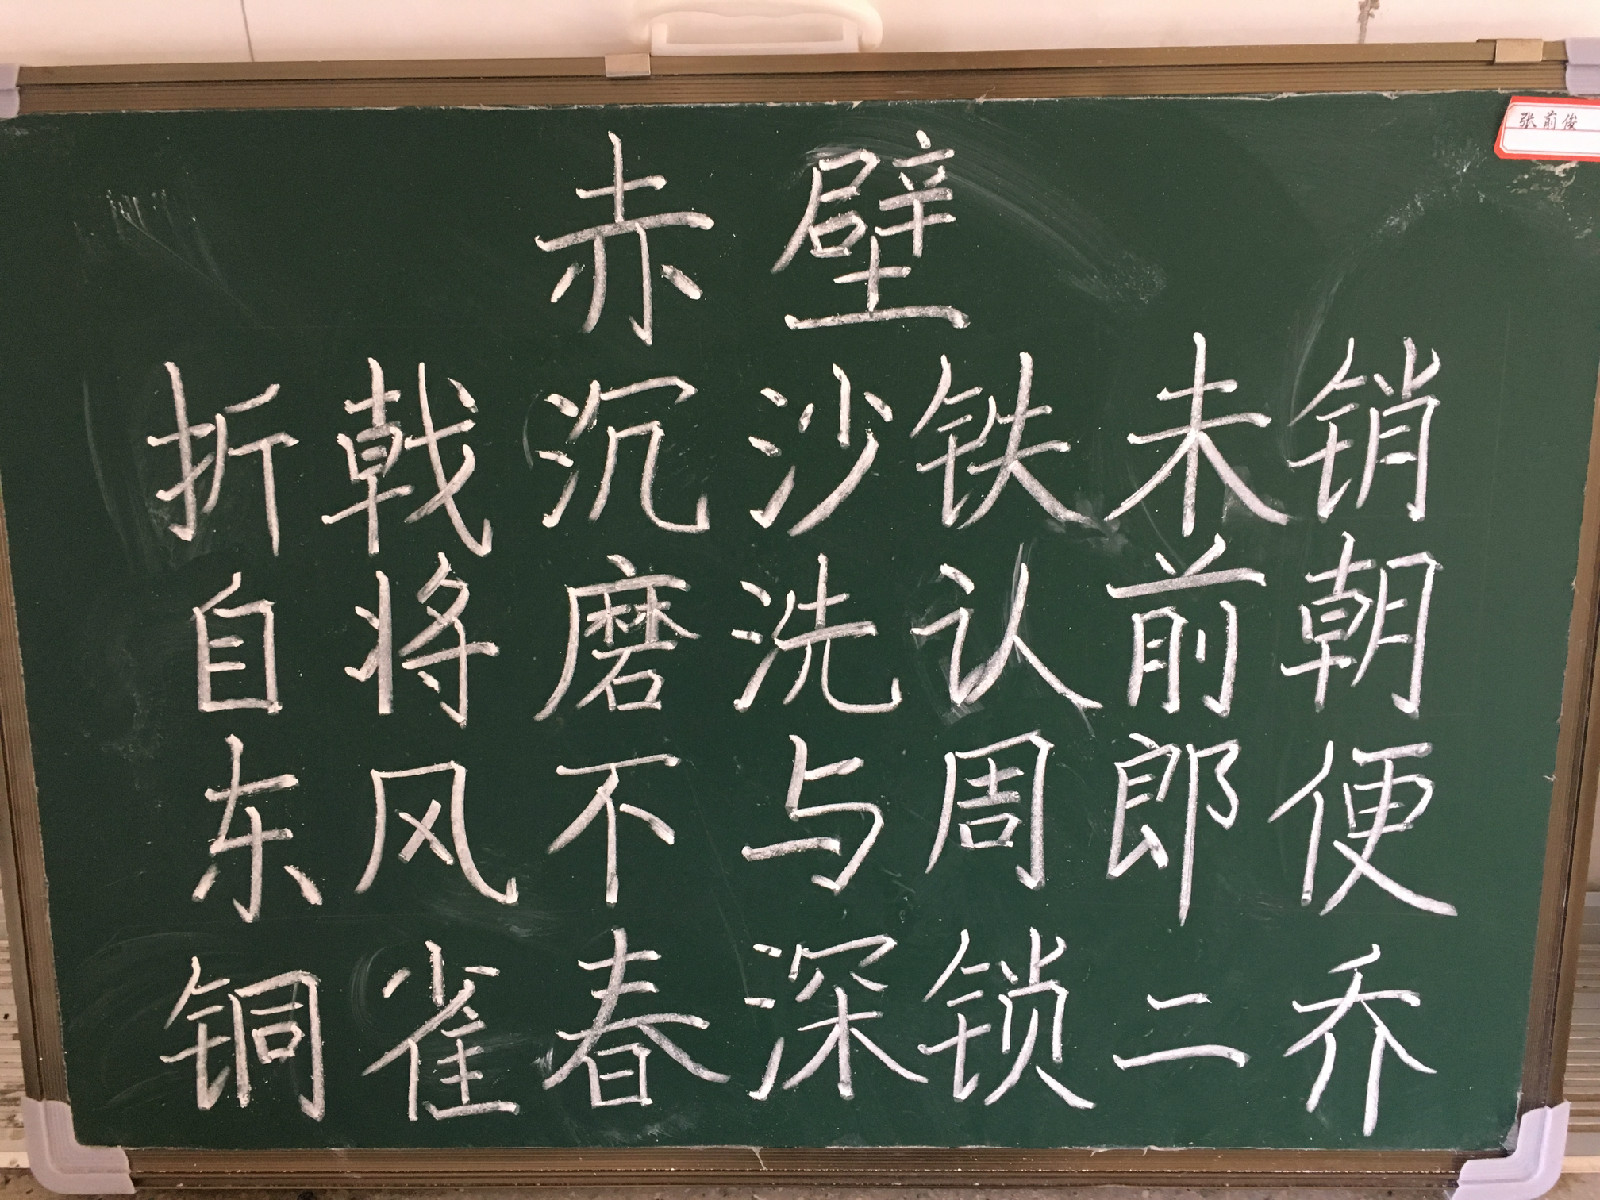 张前俊
赤壁
折戟沉沙铁未销
自将磨洗认前朝
东风不与周郎便
铜雀春深锁二乔